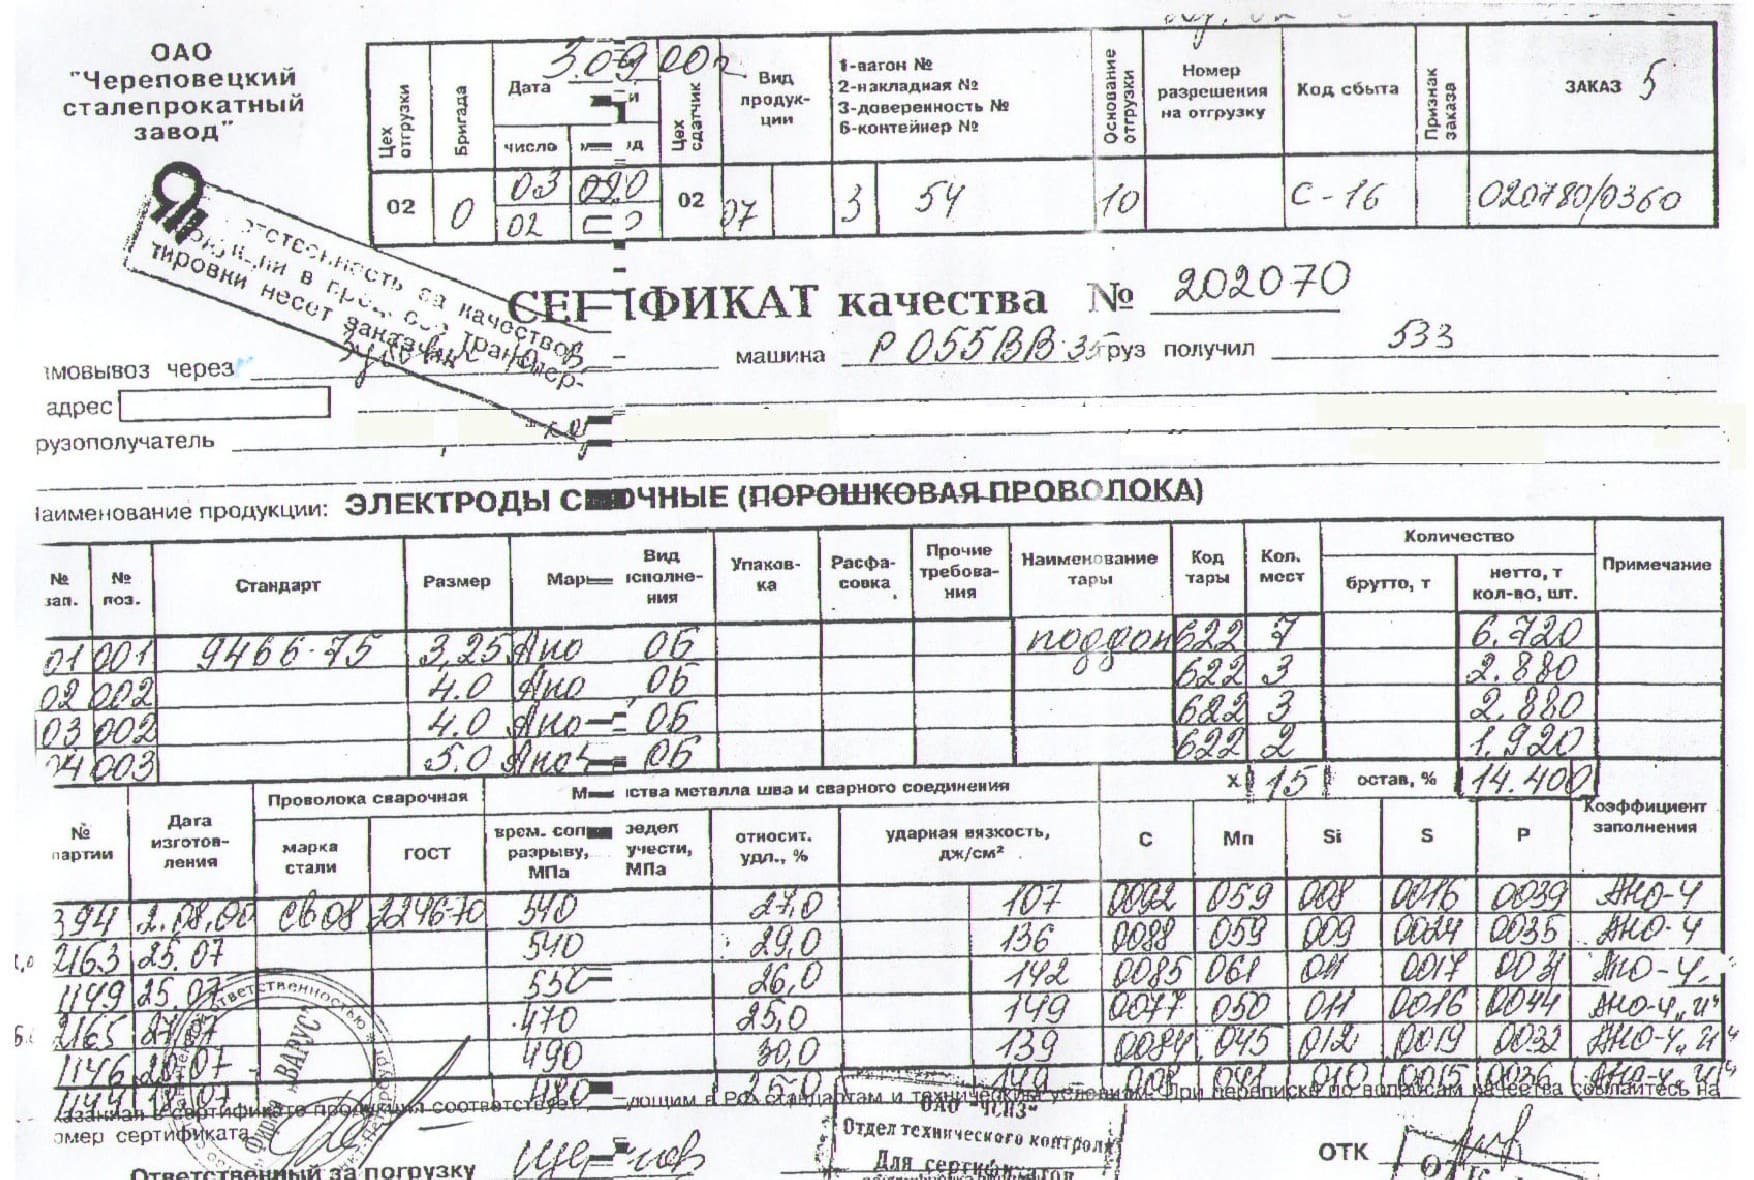 ОАО
"Череповецкий
сталепрокатный
завод"
Цех отгрузки
Бригада
Дата
3.09.00г
число
Цех сдатчик
Вид
продук-
ции
1-вагон №
2-накладная №
3-доверенность №
6-контейнер №
Основание отгрузки
Номер
разрешения
на отгрузку
Код сбыта
Признак заказа
ЗАКАЗ 5
02 0 03 02 07 3 54 10 С-16 020780/0360
02
тировки несет заказчик
качества № 202070
мовывоз через машина Р 055 ВВ 35 груз получил 533
адрес
рузополучатель
аименование продукции: ЭЛЕКТРОДЫ С ОЧНЫЕ (ПОРОШКОВАЯ ПРОВОЛОКА)
№ зап.
№ поз.
Стандарт
Размер
Мар
Вид
исполне-
ния
Упаков-
ка
Расфа-
совка
Прочие
требова-
ния
Наименование
тары
Код
тары
Кол.
мест
Количество
брутто, т
нетто, т
кол-во, шт.
Примечание
01 001 9466-75 3,25 Ано ОБ поддон 622 7 6.720
02 002 4.0 Ано ОБ 622 3 2.880
03 002 4.0 Ано ОБ 622 3 2.880
04 003 5.0 Ано ОБ 622 2 1.920
Х 15 остав, % 14.400
№
партии
Дата
изготов-
ления
Проволока сварочная
марка
стали
ГОСТ
ства металла шва и сварного соединения
врем. соп
разрыву,
МПа
редел
учести,
МПа
относит.
удл., %
ударная вязкость,
дж/см²
C Mn Si S P
Коэффициент
заполнения
394 2.08.00 св08 224670 540 27,0 107 0092 059 008 0016 0039 АНО-4
2163 25.07 540 29,0 136 0088 059 009 0024 0035 АНО-4
1149 25.07 550 26,0 142 0085 061 011 0017 0031 АНО-4
2165 27.07 470 25,0 149 0077 050 011 0016 0044 АНО-4 „и“
1146 07 490 30,0 139 0084 045 012 0019 0032 АНО-4 „и“
1144 07 480 25,0 0015 0036 АНО-4 „и“
казанная в сертификате продукция соответствует ующим в РФ стандартам и техническим условиям. При переписке по вопросам качества ссылайтесь на
омер сертификата
ответственностью
"ВАРУС"
Фирма
ОАО "ЧСПЗ"
Отдел технического контроля
Для сертификатов
Ответственный за погрузку
ОТК